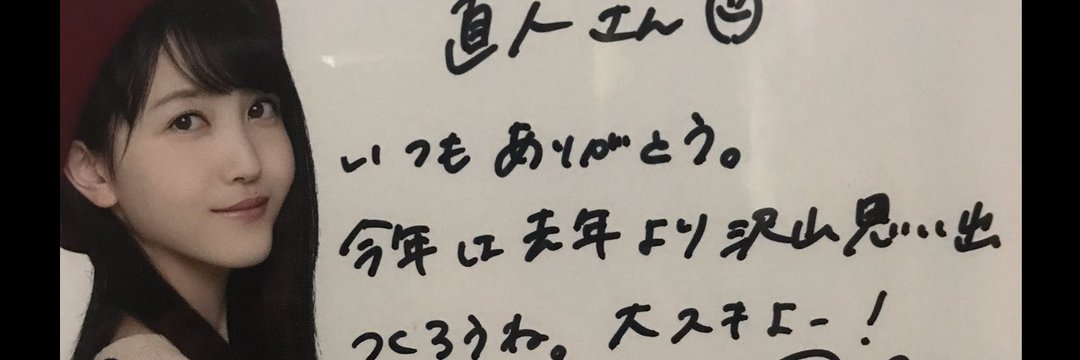 直人さん
いつもありがとう。
今年は去年より沢山思い出
つくろうね。大スキよー!